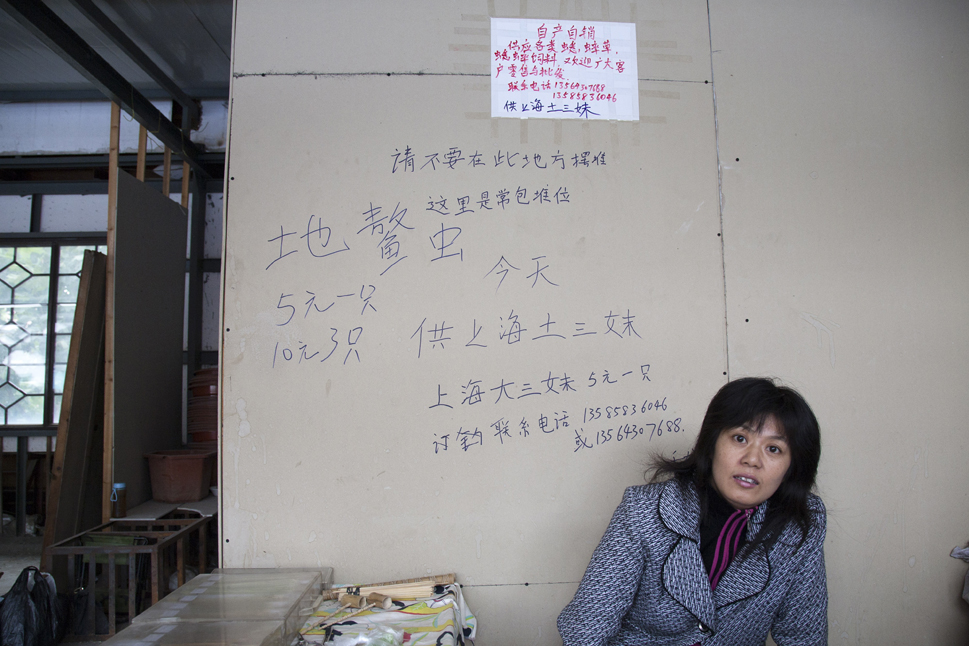 自产自销
供应各类蟋蟀草,
蟋蟀饲料 欢迎广大客
户零售与批发
联系电话 13564307688
13585836046
供上海土三妹
請不要在此地方摆堆
这里是常包堆位
地鳖虫
今天
5元一只
10元3只
供上海土三妹
上海大三妹 5元一只
订 联系电话 13585836046
或13564307688.